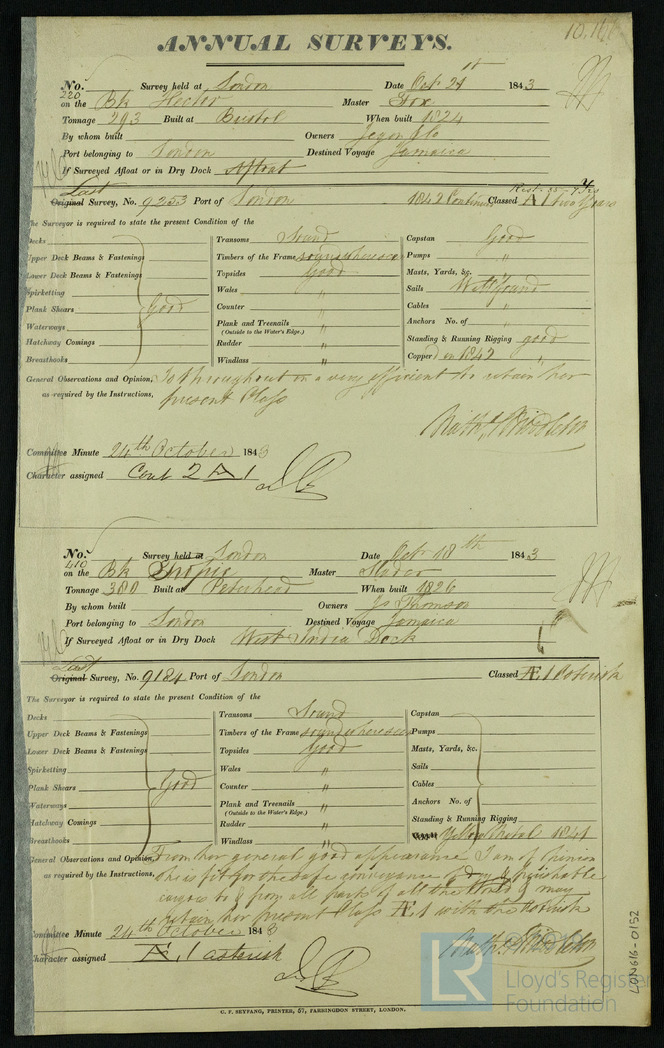 10,1
ANNUAL SURVEYS.
No. 220 Survey held at London Date Oct 21st 1843
on the Bk Hector Master Fox
Tonnage 293 Built at Bristol When built 1824
By whom built Owners
Port belonging to London Destined Voyage Jamaica
If Surveyed Afloat or in Dry Dock Afloat
Last
Original Survey, No. 9253 Port of London 1842 Continued Classed A 1 two Years
The Surveyor is required to state the present Condition of the
Decks
Upper Deck Beams & Fastenings
Lower Deck Beams & Fastenings
Spirketting
Plank Shears Good
Waterways
Hatchway Comings
Breasthooks
Transoms Sound
Timbers of the Frame sound where seen
Topsides Good
Wales "
Counter "
Plank and Treenails "
(Outside to the Water's Edge.)
Rudder "
Windlass "
Capstan Good
Pumps "
Masts, Yards, &c. "
Sails Well found
Cables "
Anchors No. of
Standing & Running Rigging good
Copper'd in 1842 "
General Observations and Opinion, Is throughout in a very efficient to retain her
as required by the Instructions, present Class
Nathl Middleton
Committee Minute 24th October 1843
Character assigned Cont 2 A 1
No. 410 Survey held at London Date Oct 18th 1843
on the Bk Tropic Master
Tonnage 380 Built at Peterhead When built 1826
By whom built Owners Js Thomson
Port belonging to London Destined Voyage Jamaica
If Surveyed Afloat or in Dry Dock West India Dock
Last
Original Survey, No. 9184 Port of London Classed Æ 1 Asterisk
The Surveyor is required to state the present Condition of the
Decks
Upper Deck Beams & Fastenings
Lower Deck Beams & Fastenings
Spirketting
Plank Shears Good
Waterways
Hatchway Comings
Breasthooks
Transoms Sound
Timbers of the Frame sound where seen
Topsides Good
Wales "
Counter "
Plank and Treenails "
(Outside to the Water's Edge.)
Rudder "
Windlass "
Capstan
Pumps
Masts, Yards, &c.
Sails
Cables
Anchors No. of
Standing & Running Rigging
Yellow Metal 1841
General Observations and Opinion, From her general good appearance I am of Opinion
as required by the Instructions, she is fit for the safe conveyance of dry & perishable
cargoes to & from all parts of all the World & may
retain her present Class Æ 1 with the asterisk
Nathl Middleton
Committee Minute 24th October 1843
Character assigned Æ 1 asterisk
G. F. SEYFANG, PRINTER, 57, FARRINGDON STREET, LONDON.
LR
Lloyd's Register
Foundation
LON616-0152